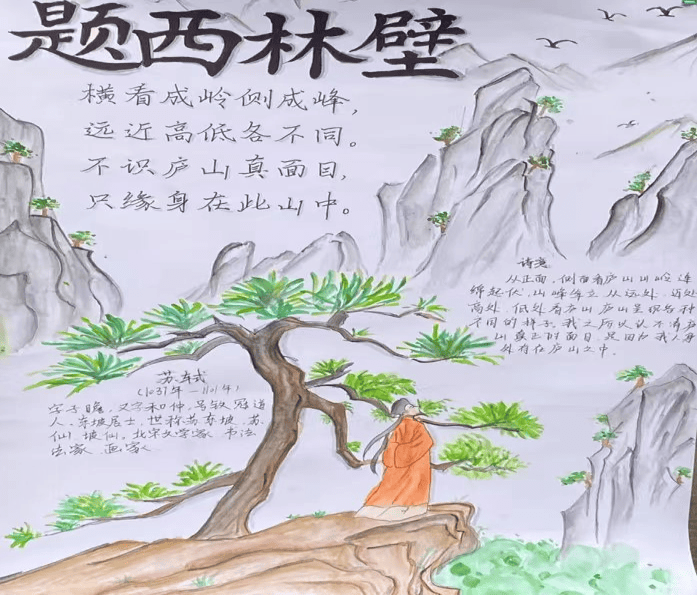 题西林壁
横看成岭侧成峰，
远近高低各不同。
不识庐山真面目，
只缘身在此山中。
诗意
从正面、侧面看庐山山岭连
绵起伏、山峰耸立，从远处、近处
高处、低处看庐山庐山呈现各种
不同的样子。我之所以认不清庐
山真正的面目，是因为我人身
处在庐山之中。
苏轼
(1037年—1101年)
字子瞻，又字和仲，号铁冠道
人、东坡居士，世称苏东坡、苏
仙、坡仙。北宋文学家、书法
家、画家